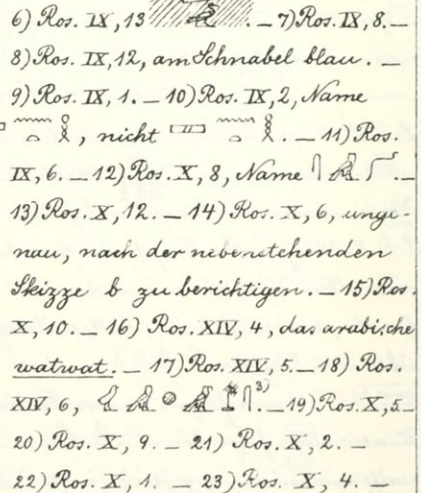 6) Ros. IX, 13 . _ 7) Ros. IX, 8. _
8) Ros. IX, 12, am Schnabel blau. _
9) Ros. IX, 1. _ 10) Ros. IX, 2, Name
, nicht . _ 11) Ros.
IX, 6. _ 12) Ros. X, 8, Name . _
13) Ros. X, 12. _ 14) Ros. X, 6, unge-
nau, nach der nebenstehenden
Skizze b zu berichtigen. _ 15) Ros.
X, 10. _ 16) Ros. XIV, 4, das arabische
watwat. _ 17) Ros. XIV, 5. _ 18) Ros.
XIV, 6, 3) . _ 19) Ros. X, 5. _
20) Ros. X, 9. _ 21) Ros. X, 2. _
22) Ros. X, 1. _ 23) Ros. X, 4. _